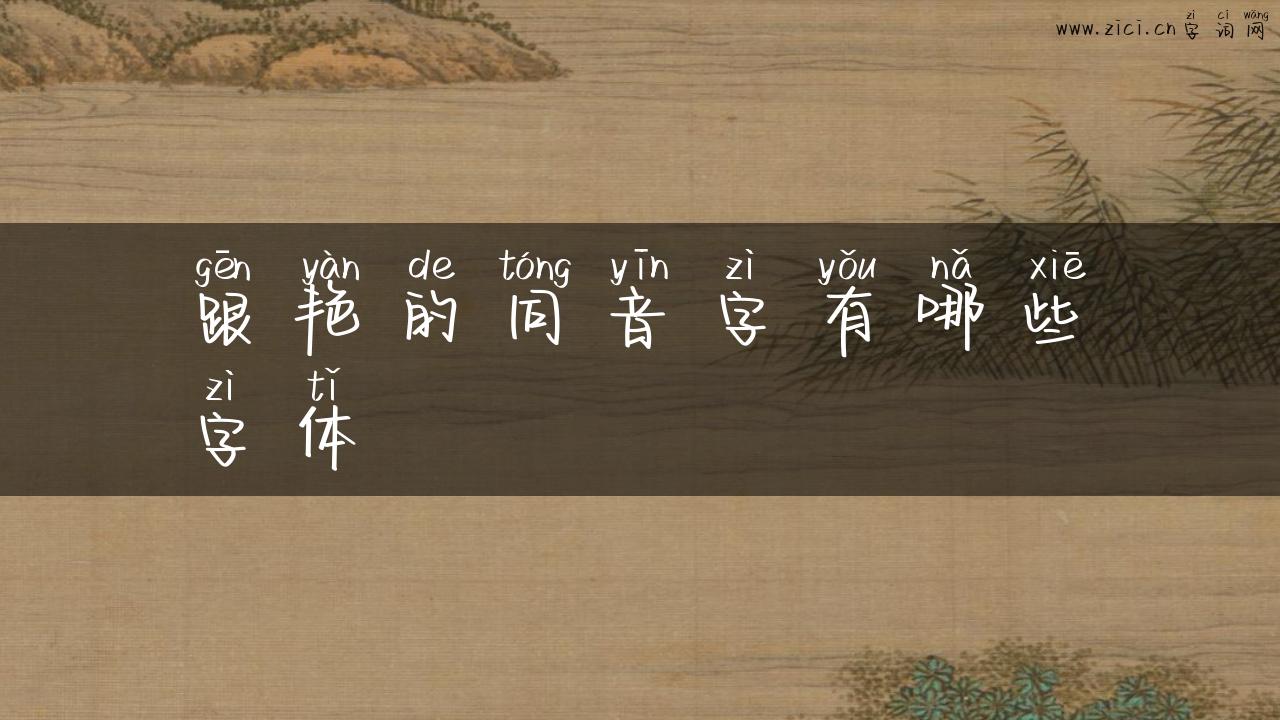 www.zici.cn
zì cí wǎng
字词网
gēn yàn de tóng yīn zì yǒu nǎ xiē
跟艳的同音字有哪些
zì tǐ
字体